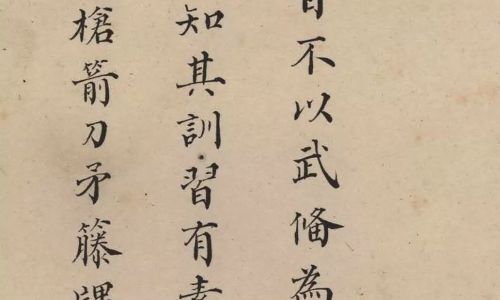 不以武俻為
知其訓習有素
槍箭刀矛籐牌